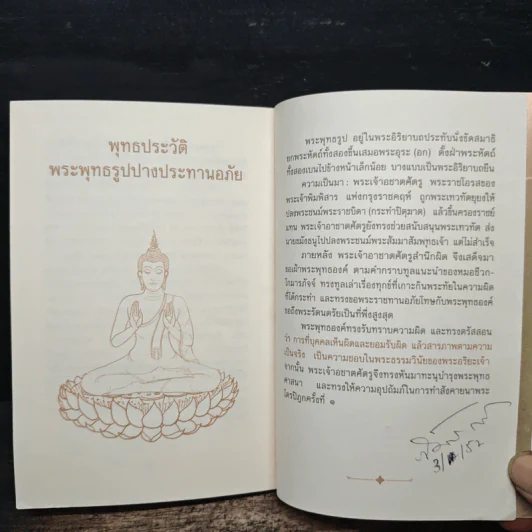 พุทธประวัติ
พระพุทธรูปปางประทานอภัย
พระพุทธรูป อยู่ในพระอิริยาบถประทับนั่งขัดสมาธิ
ยกพระหัตถ์ทั้งสองขึ้นเสมอพระอุระ (อก) ตั้งฝ่าพระหัตถ์
ทั้งสองแบนไปข้างหน้าเล็กน้อย บางแบบเป็นพระอิริยาบถยืน
ความเป็นมา : พระเจ้าอชาตศัตรู พระราชโอรสของ
พระเจ้าพิมพิสาร แห่งกรุงราชคฤห์ ถูกพระเทวทัตยุยงให้
ปลงพระชนม์พระราชบิดา (กระทำปิตุฆาต) แล้วขึ้นครองราชย์
แทน พระเจ้าอชาตศัตรูยังทรงช่วยสนับสนุนพระเทวทัต ส่ง
นายขมังธนูไปปลงพระชนม์พระสัมมาสัมพุทธเจ้า แต่ไม่สำเร็จ
ภายหลัง พระเจ้าอชาตศัตรูสำนึกผิด จึงเสด็จมา
ขอเฝ้าพระพุทธองค์ ตามคำกราบทูลแนะนำของหมอชีวก-
โกมารภัจจ์ ทรงทูลเล่าเรื่องทุกข์ที่เกาะกินพระทัยในความผิด
ที่ได้กระทำ และทรงขอพระราชทานอภัยโทษกับพระพุทธองค์
ขอถึงพระรัตนตรัยเป็นที่พึ่งสูงสุด
พระพุทธองค์ทรงรับทราบความผิด และทรงตรัสสอน
ว่า การที่บุคคลเห็นผิดและยอมรับผิด แล้วสารภาพตามความ
เป็นจริง เป็นความชอบในพระธรรมวินัยของพระอริยะเจ้า
จากนั้น พระเจ้าอชาตศัตรูจึงทรงหันมาทะนุบำรุงพระพุทธ
ศาสนา และทรงให้ความอุปถัมภ์ในการทำสังคายนาพระ
ไตรปิฎกครั้งที่ ๑